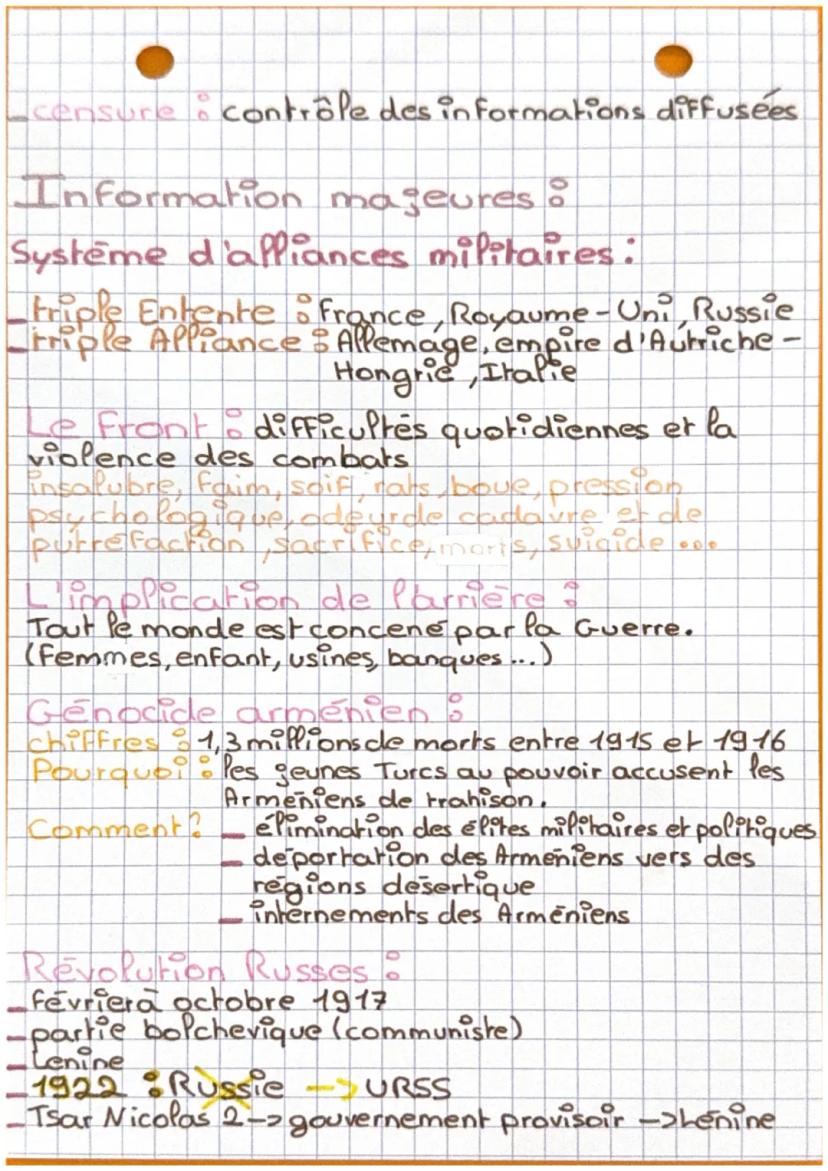 _censure : contrôle des informations diffusées
Information majeures :
Système d'alliances militaires :
_triple Entente : France, Royaume-Uni, Russie
_triple Alliance : Allemage, empire d'Autriche-
Hongrie, Italie
Le Front : difficultés quotidiennes et la
violence des combats
insalubre, faim, soif, rats, boue, pression
psychologique, odeur de cadavre et de
putréfaction, sacrifice, morts, suicide ...
L'implication de l'arrière :
Tout le monde est concené par la Guerre.
(Femmes, enfant, usines, banques ...)
Génocide arménien :
chiffres : 1,3 millions de morts entre 1915 et 1916
Pourquoi : les jeunes Turcs au pouvoir accusent les
Arméniens de trahison.
Comment ? _ élimination des élites militaires et politiques
_ déportation des Arméniens vers des
régions désertique
_ internements des Arméniens
Révolution Russes :
_février à octobre 1917
_partie bolchevique (communiste)
_Lenine
_1922 : Russie --> URSS
_Tsar Nicolas 2 -> gouvernement provisoir -> Lénine